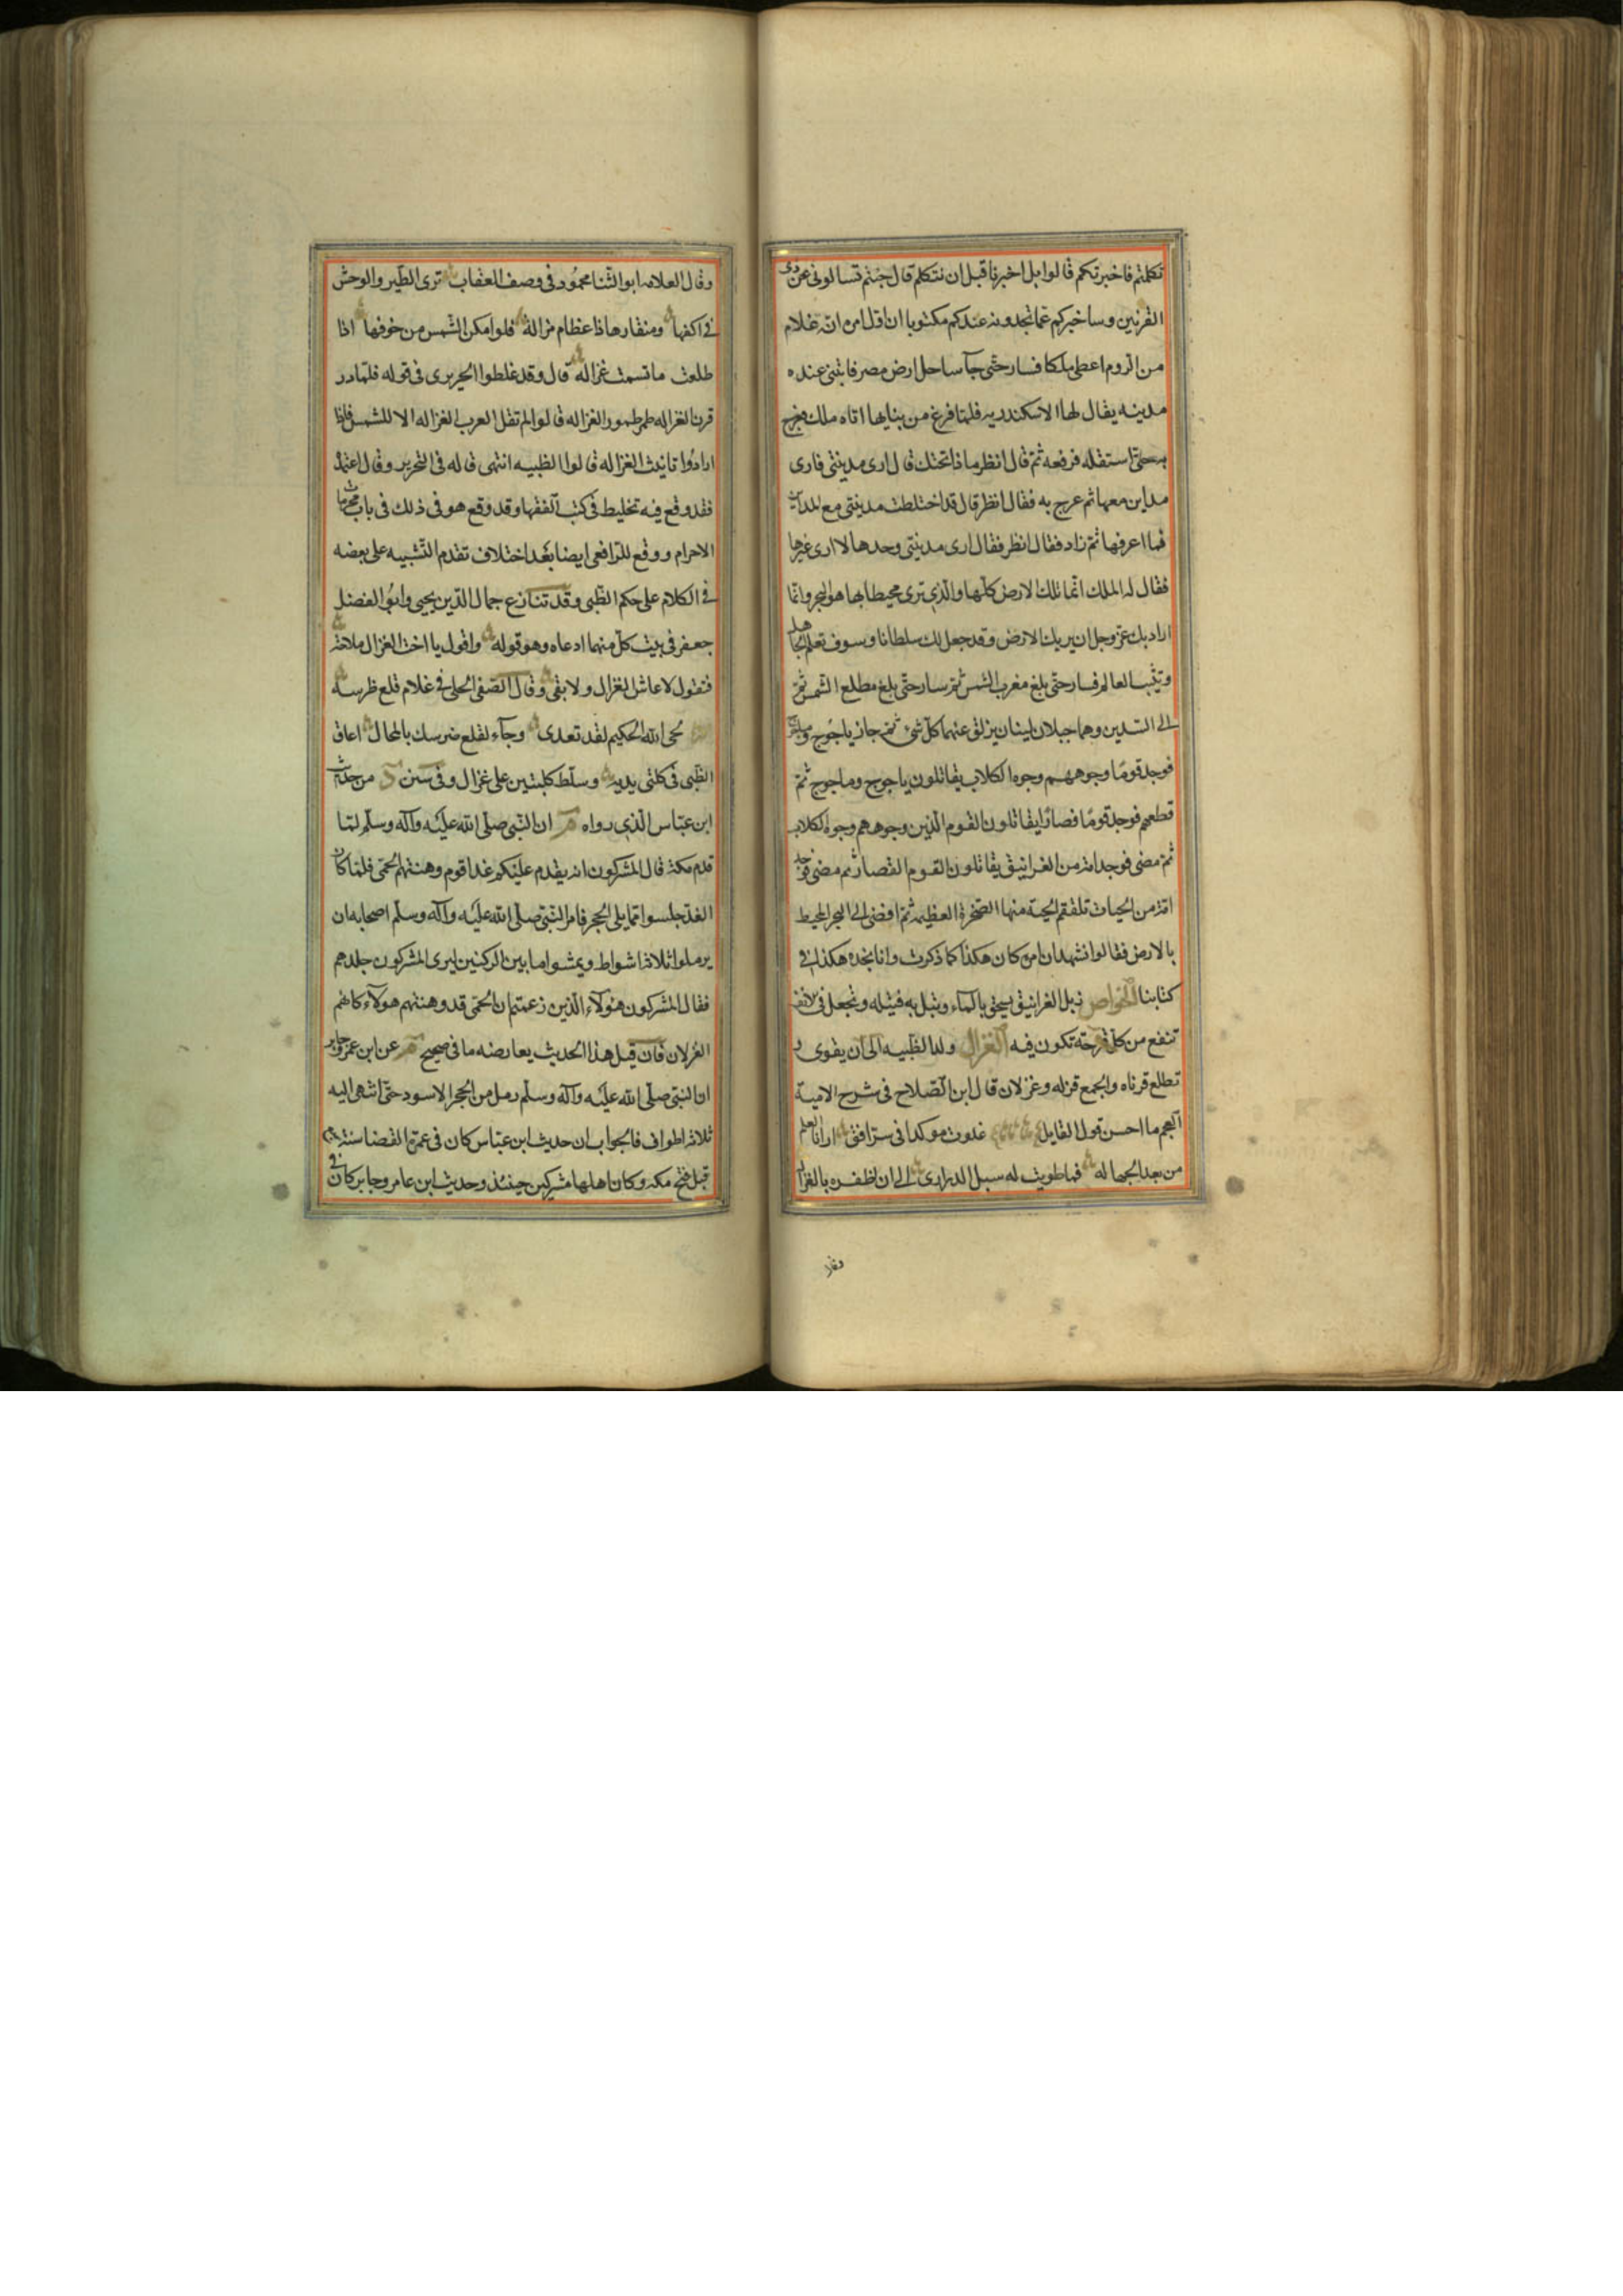 تكلمتم فاخبرتكم قالوا بل اخبرنا قبل ان نتكلم قال جئتم تسالونى عن ذى
القرنين وساخبركم عما تجدونه عندكم مكتوبا ان اول امره انه غلام
من الروم اعطى ملكا فسار حتى جآ ساحل ارض مصر فابتنى عنده
مدينه يقال لها الاسكندريه فلما فرغ من بنايها اتاه ملك فعرج
به حتى استقله فرفعه ثم قال انظر ماذا تحتك قال ارى مدينتى فارى
مداين معها ثم عرج به فقال انظر قال قد اختلطت مدينتى مع المداين
فما اعرفها ثم زاد فقال انظر فقال ارى مدينتى وحدها لا ارى غيرها
فقال له الملك انما تلك الارض كلها والذى ترى محيطا بها هو البحر وانما
اراد بك عز وجل ان يريك الارض وقد جعل لك سلطانا وسوف تعلم الجاهل
وتثبت العالم فسار حتى بلغ مغرب الشمس ثم سار حتى بلغ مطلع الشمس ثم
الى السدين وهما جبلان لينان يزلق عنهما كل شئ ثم جاز ياجوج وماجوج
فوجد قوما وجوههم وجوه الكلاب يقاتلون ياجوج وماجوج ثم
قطعهم فوجد قوما قصارا يقاتلون القوم الذين وجوههم وجوه الكلاب
ثم مضى فوجد امة من الغرانيق يقاتلون القوم القصار ثم مضى فوجد
امة من الحيات تلتقم الحية منها الصخرة العظيمه ثم افضى الى البحر المحيط
بالارض فقالوا نشهد ان امره كان هكذا كما ذكرت وانا نجده هكذا فى
كتابنا الخواص زبل الغرانيق يسحق بالماء ويبل به فتيله وتجعل فى الانف
تنفع من كل قرحة تكون فيه الغزال ولد الظبيه الى ان يقوى و
تطلع قرناه والجمع غزله وغزلان قال ابن الصلاح فى شرح لامية
العجم ما احسن قول القايل غدوت موكدا فى ستر افقى ارانا العلم
من بعد الجهاله فما طويت له سبل الدرارى الى ان اظفرته بالغزاله
وقال
وقال العلامه ابو الثنا محمود فى وصف العقاب ترى الطير والوحش
فى اكفها ومنقارها ذا عظام مزالة فلو امكن الشمس من خوفها اذا
طلعت ما تسمت غزاله قال وقد غلطوا الحريرى فى قوله فلما ذر
قرن الغزاله طمر طمور الغزاله قالوا لم تقل العرب الغزاله الا للشمس فاذا
ارادوا تانيث الغزاله قالوا الظبيه انتهى قاله فى التحرير وقال اعتمد
فقد وقع فيه تخليط فى كتب الفقها وقد وقع هو فى ذلك فى باب محرمات
الاحرام ووقع للرافعى ايضا بعد اختلاف تقدم التنبيه على بعضه
فى الكلام على حكم الظبى وقد تنازع جمال الدين يحيى وابو الفضل
جعفر فى بيت كل منهما ادعاه وهو قوله واقول يا اخت الغزال ملاحة
فتقول لا عاش الغزال ولا بقى وقال الصفى الحلى فى غلام قلع ظرسه
لحى الله الحكيم لقد تعدى وجآء لقلع ضرسك بالمحال اعاق
الظبى فى كلتى يديه وسلط كلبتين على غزال وفى سنن من حديث
ابن عباس الذى رواه ان النبى صلى الله عليه وآله وسلم لما
قدم مكة قال المشركون انه يقدم عليكم غدا قوم وهنتهم الحمى فلما كان
الغد جلسوا مما يلى الحجر فامر النبى صلى الله عليه وآله وسلم اصحابه ان
يرملوا ثلاثة اشواط ويمشوا ما بين الركنين ليرى المشركون جلدهم
فقال المشركون هؤلآء الذين زعمتم ان الحمى قد وهنتهم هولآء كانهم
الغزلان فان قيل هذا الحديث يعارضه ما فى صحيح عن ابن عمر وجابر
ان النبى صلى الله عليه وآله وسلم رمل من الحجر الاسود حتى انتهى اليه
ثلاثه اطواف فالجواب ان حديث ابن عباس كان فى عمرة القضا سنة
قبل فتح مكه وكان اهلها مشركين حينئذ وحديث ابن عامر وجابر كان فى